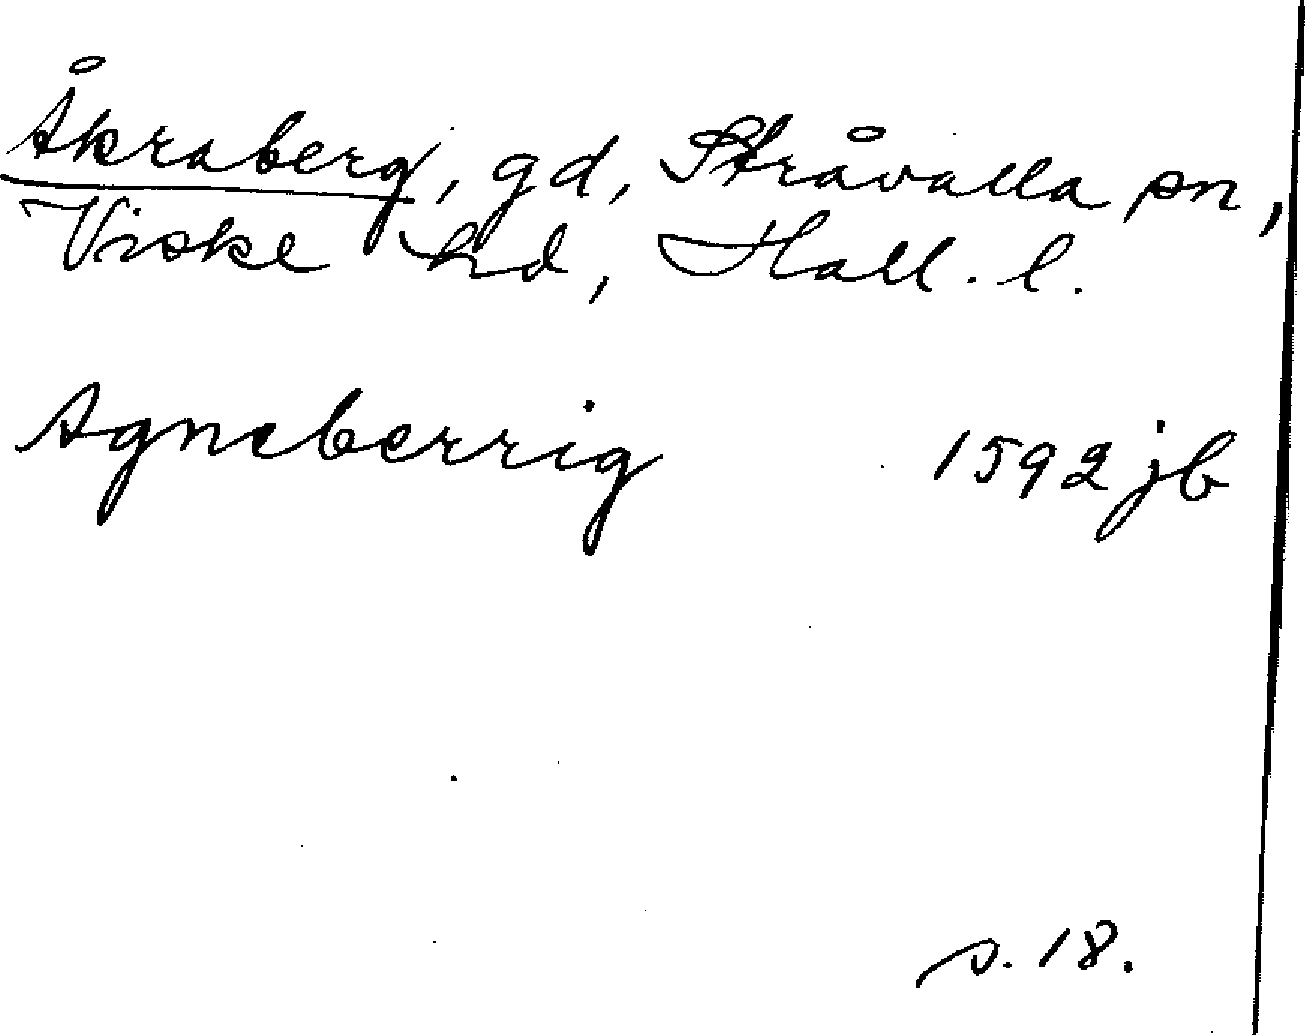 Åkraberg, gd, Stråvalla sn,
Viske hd, Hall. l.
Agneberrig 1592 jb
s. 18.